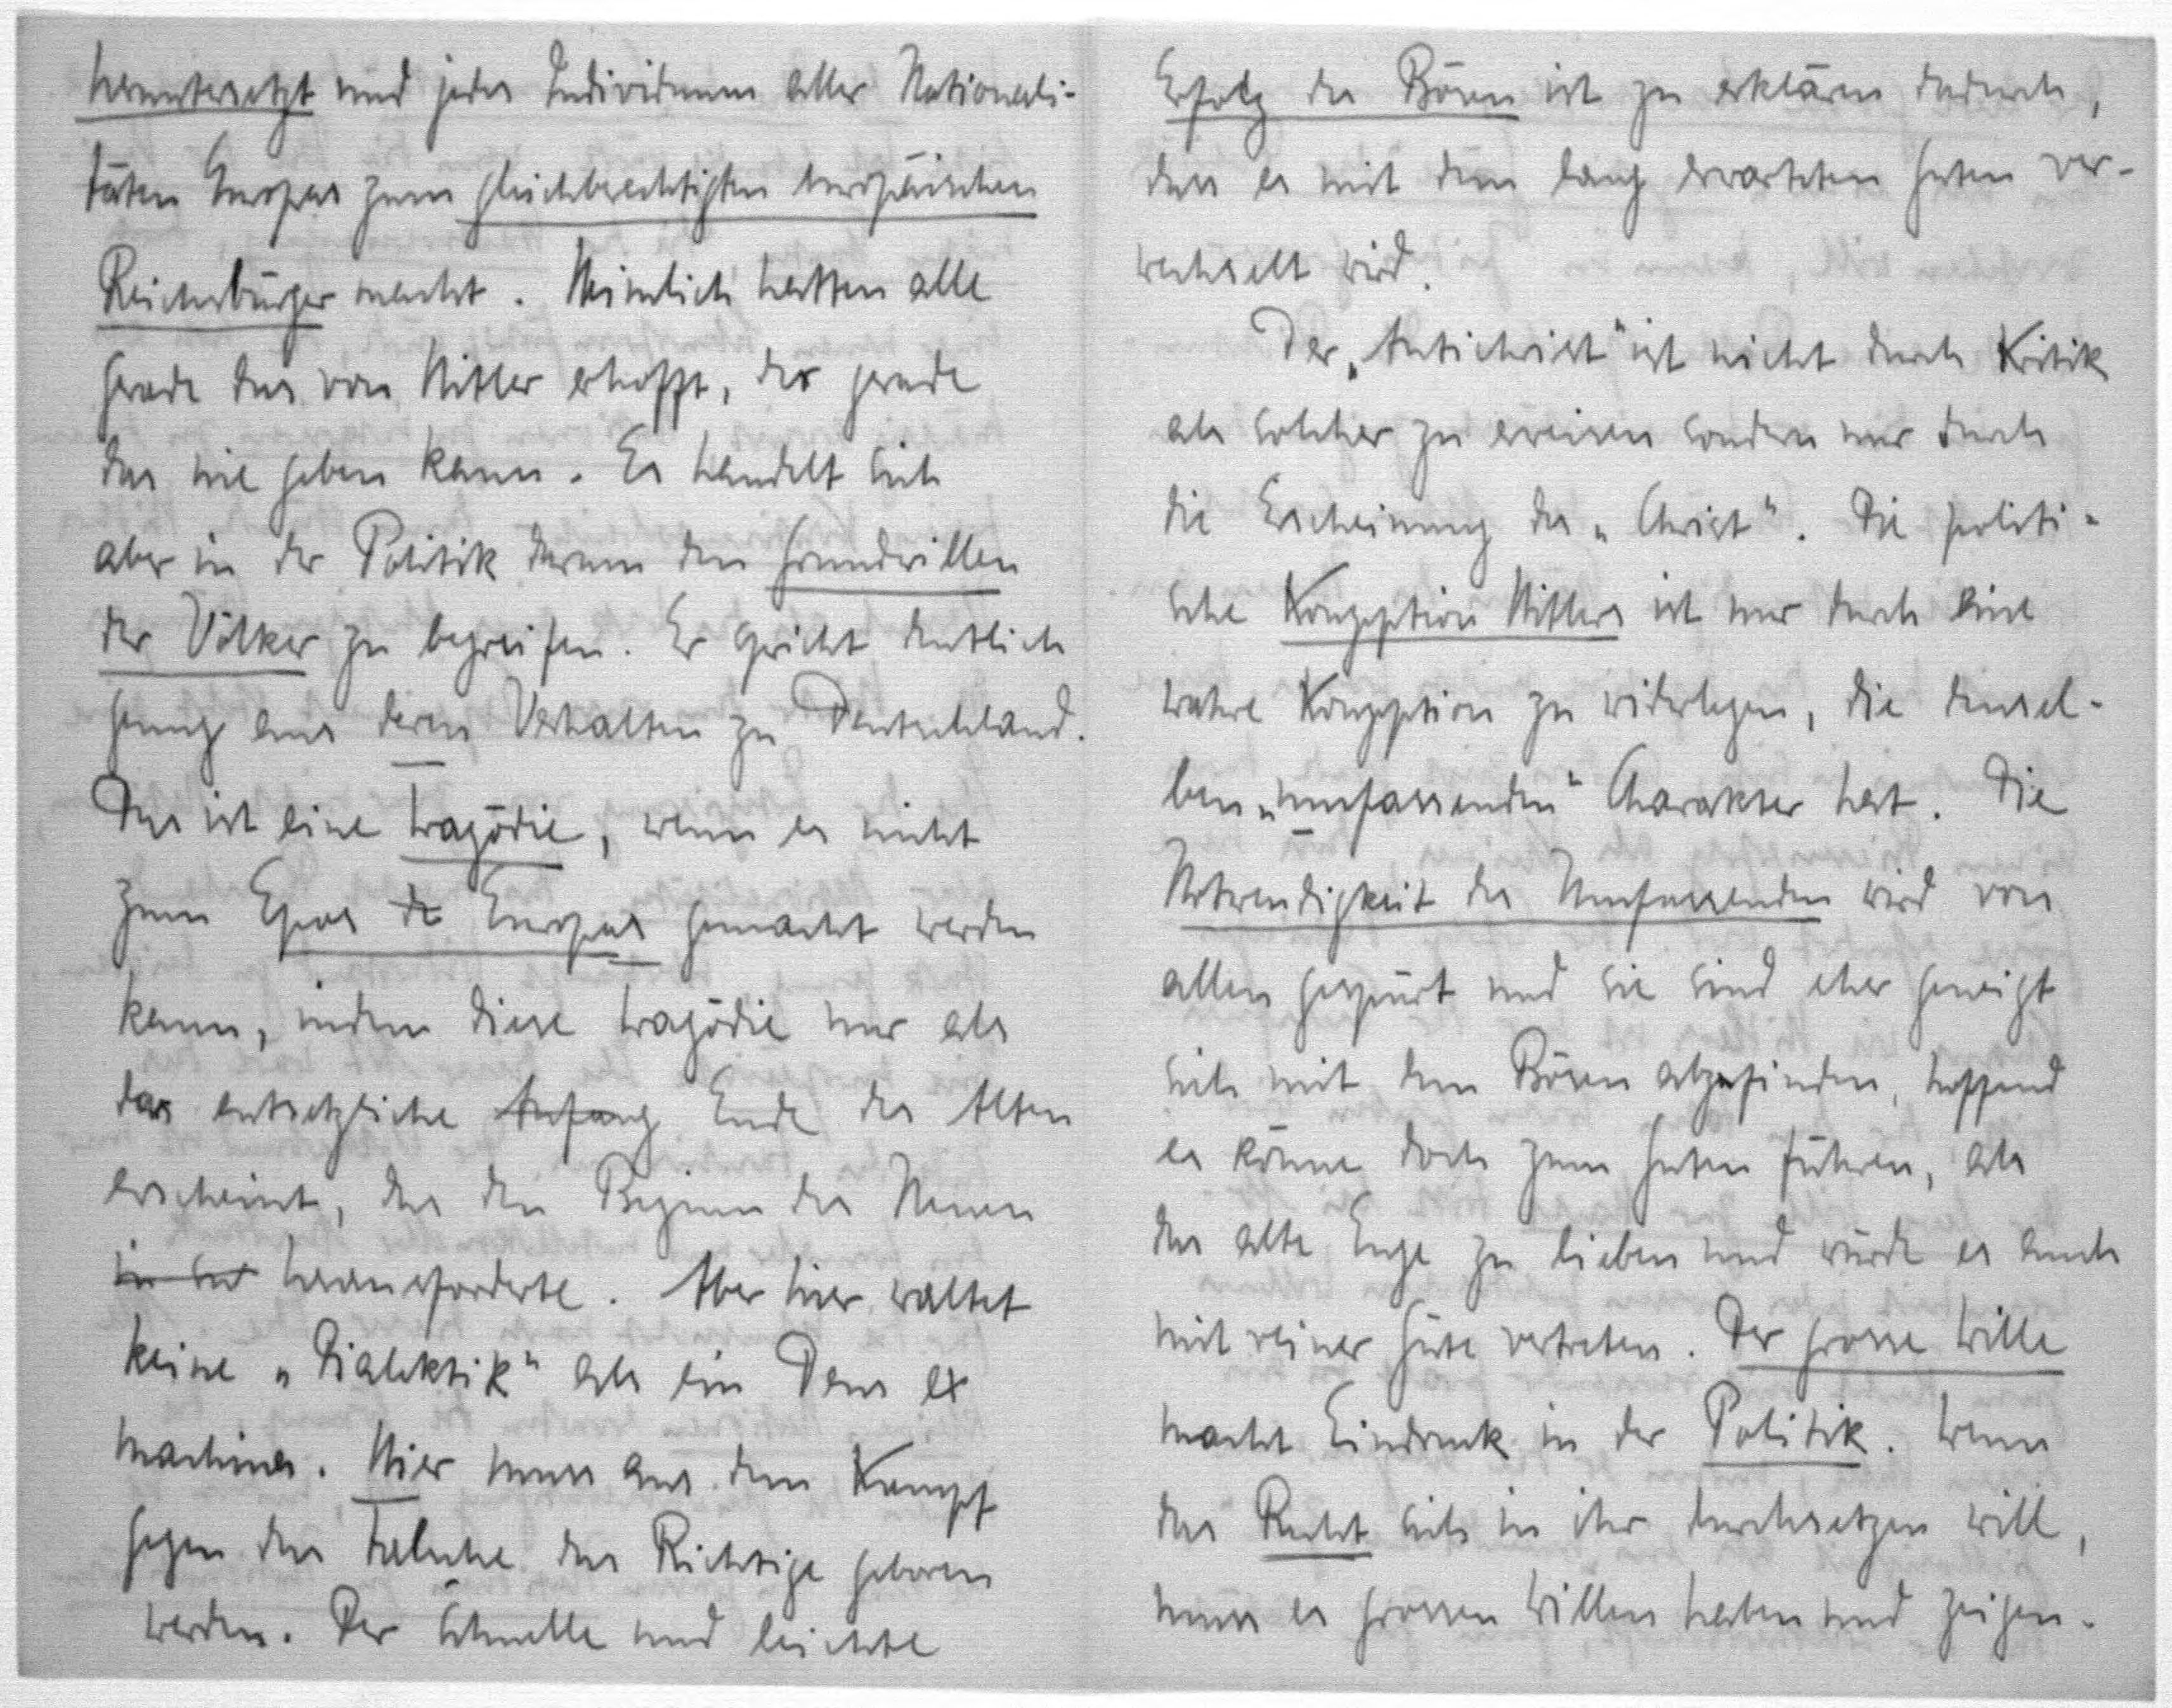 heruntersetzt und jedes Individuum aller Nationali-
täten Europas zum gleichberechtigten europäischen
Reichsbürger macht. Heimlich hatten alle
gerade das von Hitler erhofft, der gerade
das nie geben kann. Es handelt sich
aber in der Politik darum den Grundwillen
der Völker zu begreifen. Er spricht deutlich
genug aus deren Verhalten zu Deutschland.
Das ist eine Tragödie, wenn es nicht
zum Epos de Europas gemacht werden
kann, indem diese Tragödie nur als
das entsetzliche Anfang Ende des Alten
erscheint, das den Beginn des Neuen
herausforderte. Aber hier waltet
keine „Dialektik" als ein Deus ex
machina. Hier muss aus dem Kampf
gegen das Falsche das Richtige geboren
werden. Der schnelle und leichte
Erfolg des Bösen ist zu erklären dadurch,
dass es mit dem lang erwarteten Guten ver-
wechselt wird.
Der „Antichrist" ist nicht durch Kritik
als solcher zu erweisen sondern nur durch
die Erscheinung des „Christ". Die politi-
sche Konzeption Hitlers ist nur durch eine
wahre Konzeption zu widerlegen, die densel-
ben „umfassenden" Charakter hat. Die
Notwendigkeit des Umfassenden wird von
allen gespürt und sie sind eher geneigt
sich mit dem Bösen abzufinden, hoffend
es könne doch zum Guten führen, als
das alte Enge zu lieben und würde es auch
mit reiner Güte vertreten. Der grosse Wille
macht Eindruck in der Politik. Wenn
das Recht sich in ihr durchsetzen will,
muss es grossen Willen haben und zeigen.